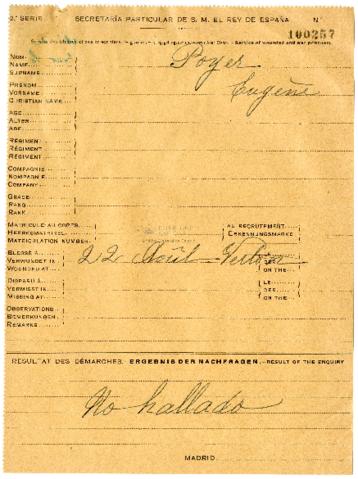 2.ª SERIE SECRETARÍA PARTICULAR DE S. M. EL REY DE ESPAÑA N.º
100257
Service of wounded and war prisoners.
NOM
NAME
SURNAME
Poyer
PRENOM
VORNAME
CHRISTIAN NAME
Eugène
AGE
ALTER
AGE
REGIMENT
REGIMENT
REGIMENT
COMPAGNIE
KOMPAGNIE
COMPANY
GRADE
RANG
RANK
MATRICULE AU CORPS
MATRICULATION NUMBER
AU RECRUTEMENT
ERKENNUNGSMARKE
BLESSÉ A
VERWUNDET IN
WOUNDED AT
22 Août Verton
ON THE
DISPARU A
VERMISST IN
MISSING AT
LE
DEN
ON THE
OBSERVATIONS
BEMERKUNGEN
REMARKS
RESULTAT DES DÉMARCHES. ERGEBNIS DER NACHFRAGEN.—RESULT OF THE ENQUIRY
No hallado
MADRID